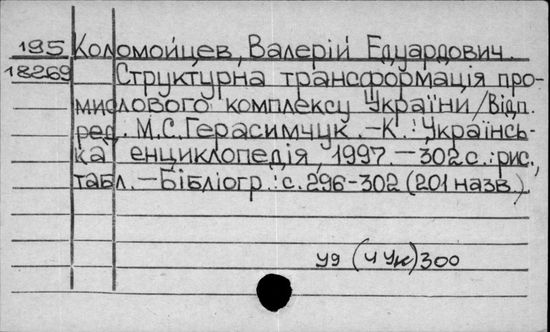 195 Коломойцев, Валерій Едуардович.
18269 Структурна трансформація про-
мислового комплексу України / Відп.
ред. М.С. Герасимчук. – К.: Українсь-
ка енциклопедія, 1997. – 302 с.: рис.,
табл. – Бібліогр.: с. 296-302 (201 назв.)
У9 (4 Ук) 300